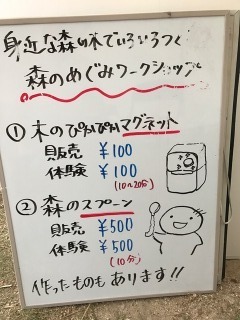 身近な森の木でいろいろつくる
森のめぐみワークショップ
① 木のぴかぴかマグネット
販売 ¥100
体験 ¥100
(10〜20分)
② 森のスプーン
販売 ¥500
体験 ¥500
(10分)
作ったものもあります!!